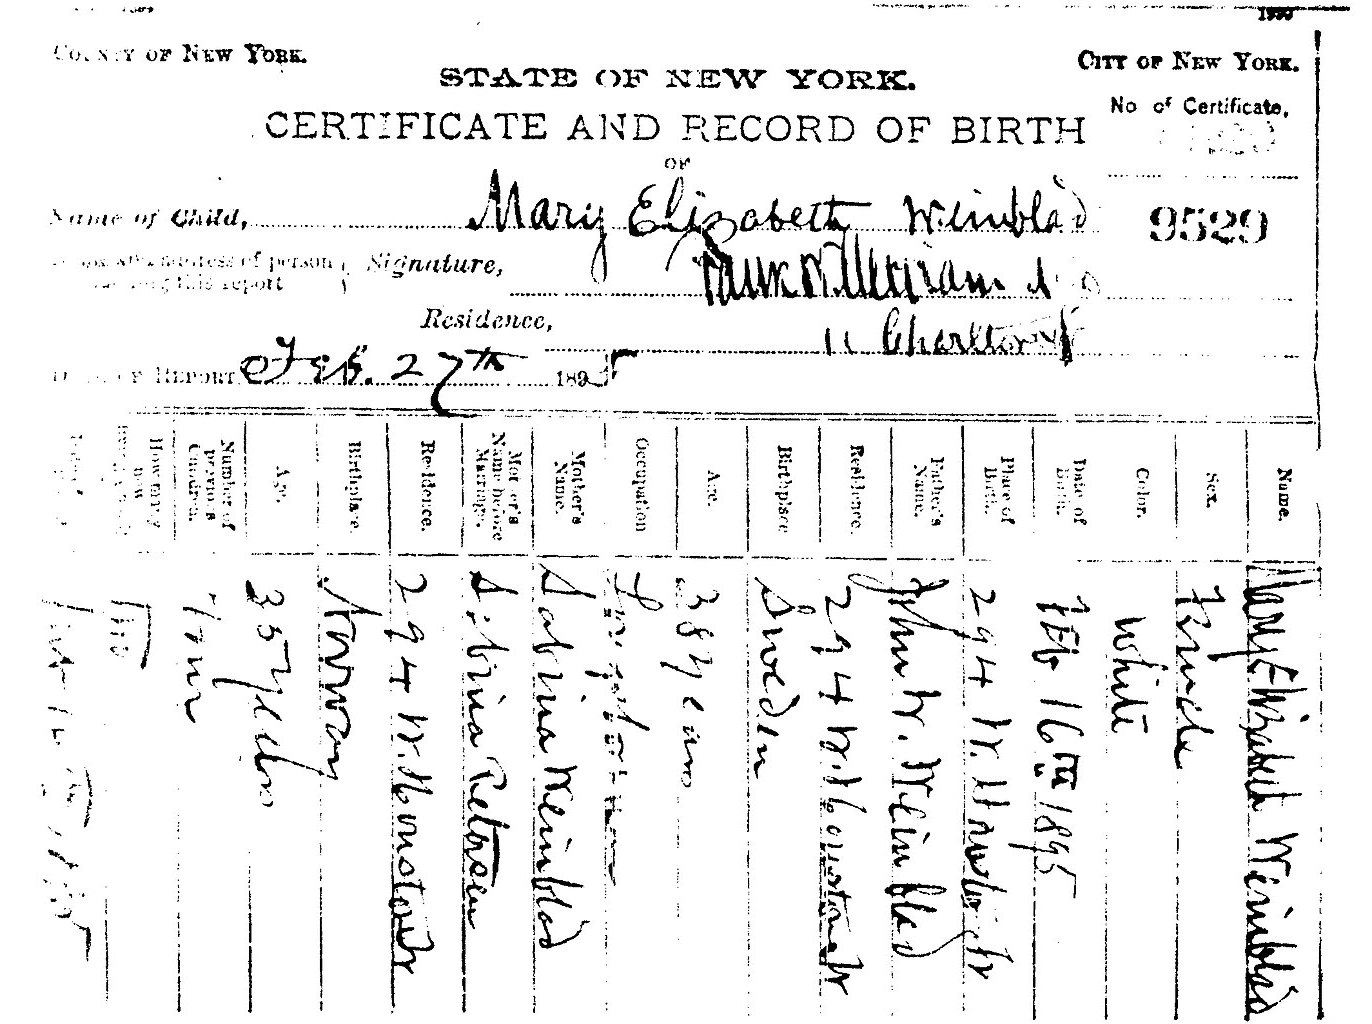 COUNTY OF NEW YORK.
CITY OF NEW YORK.
STATE OF NEW YORK.
No of Certificate,
CERTIFICATE AND RECORD OF BIRTH
OF
Name of Child, Mary Elizabeth Weinblad
9529
address of person Signature,
this report
Residence, 11 Charlton St
DATE OF REPORT Feb. 27th 1895
Name. Mary Elizabeth Weinblad
Sex. Female
Color. White
Date of Birth. Feb 16th 1895
Place of Birth. 294 W. Houston Str
Father's Name. John W. Weinblad
Residence. 294 W. Houston Str
Birthplace Sweden
Age. 38 years
Occupation
Mother's Name. Sabina Weinblad
Mother's Name before Marriage. Sibina Petersen
Residence. 294 W. Houston Str
Birthplace. Norway
Age. 35 Years
Number of previous Children. Four
How many now